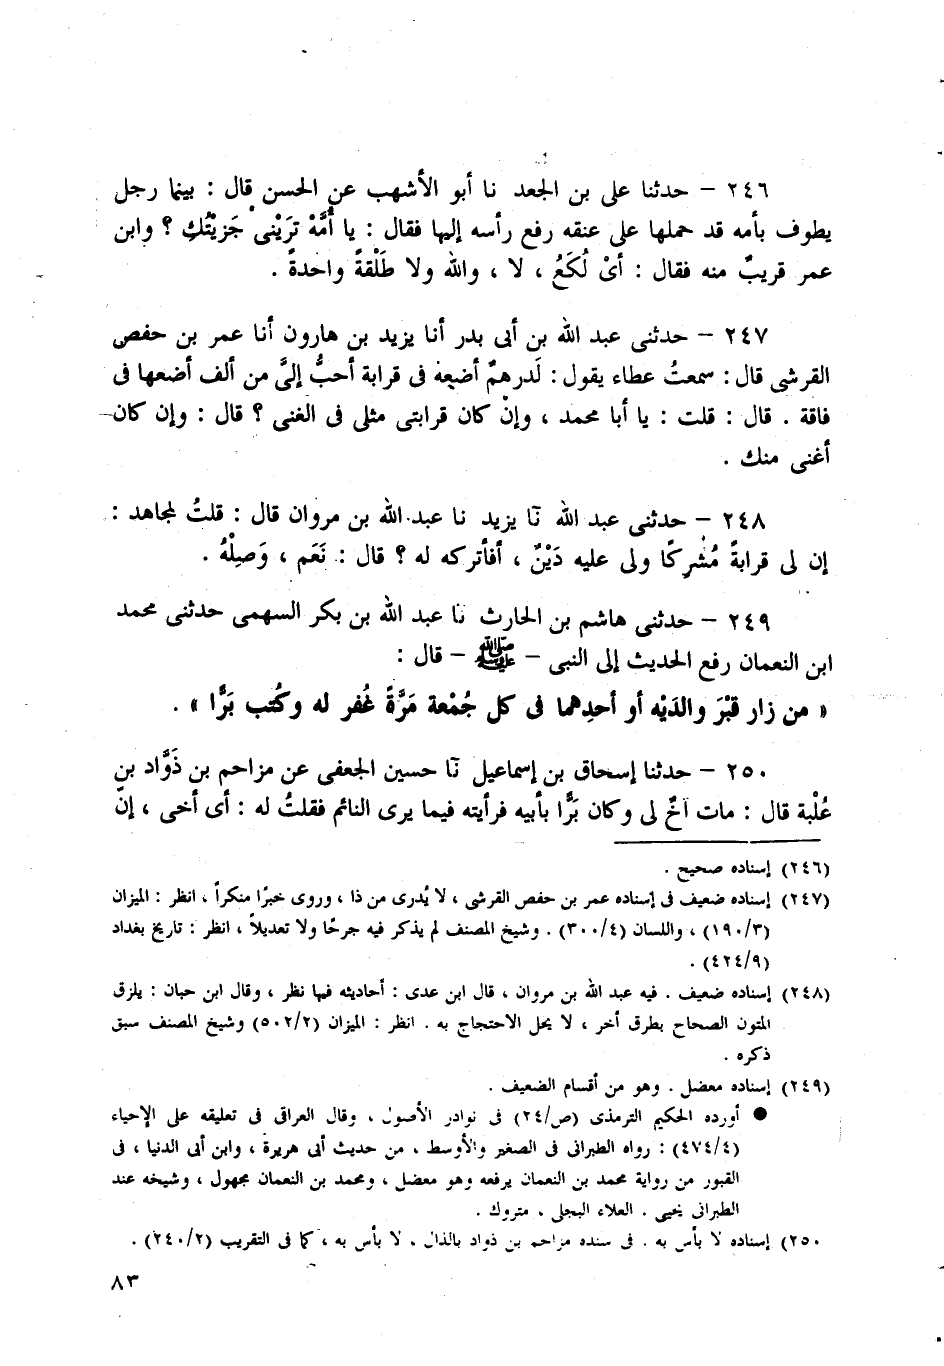 ٢٤٦ – حدثنا على بن الجعد نا أبو الأشهب عن الحسن قال : بينما رجل
يطوف بأمه قد حملها على عنقه رفع رأسه إليها فقال : يا أُمَّهْ تَرَيْنى جَزيْتُكِ ؟ وابن
عمر قريبٌ منه فقال : أىْ لُكَعُ ، لا ، والله ولا طَلْقةً واحدةً .
٢٤٧ – حدثنى عبد الله بن أبى بدر أنا يزيد بن هارون أنا عمر بن حفص
القرشى قال : سمعتُ عطاء يقول : لَدرهمٌ أضيعه فى قرابة أحبُّ إلىَّ من ألف أضعها فى
فاقة . قال : قلت : يا أبا محمد ، وإنْ كان قرابتى مثلى فى الغنى ؟ قال : وإن كان
أغنى منك .
٢٤٨ – حدثنى عبد الله نا يزيد نا عبد الله بن مروان قال : قلتُ لمجاهد :
إن لى قرابةً مُشْرِكًا ولى عليه دَيْنٌ ، أفأتركه له ؟ قال : نَعَم ، وَصِلْهُ .
٢٤٩ – حدثنى هاشم بن الحارث نا عبد الله بن بكر السهمى حدثنى محمد
ابن النعمان رفع الحديث إلى النبى – ﷺ – قال :
« من زار قبْرَ والدَيْه أو أحدِهما فى كل جُمْعة مَرَّةً غُفر له وكُتب بَرًّا » .
٢٥٠ – حدثنا إسحاق بن إسماعيل نا حسين الجعفى عن مزاحم بن ذَوَّاد بن
عُلْبة قال : مات أخٌ لى وكان بَرًّا بأبيه فرأيته فيما يرى النائم فقلتُ له : أى أخى ، إن
(٢٤٦) إسناده صحيح .
(٢٤٧) إسناده ضعيف فى إسناده عمر بن حفص القرشى ، لا يُدرى من ذا ، وروى خبرًا منكراً ، انظر : الميزان
(١٩٠/٣) ، واللسان (٣٠٠/٤) . وشيخ المصنف لم يذكر فيه جرحًا ولا تعديلاً ، انظر : تاريخ بغداد
(٤٢٤/٩) .
(٢٤٨) إسناده ضعيف . فيه عبد الله بن مروان ، قال ابن عدى : أحاديثه فيها نظر ، وقال ابن حبان : يلزق
المتون الصحاح بطرق أخر ، لا يحل الاحتجاج به . انظر : الميزان (٥٠٢/٢) وشيخ المصنف سبق
ذكره .
(٢٤٩) إسناده معضل . وهو من أقسام الضعيف .
● أورده الحكيم الترمذى (ص/٢٤) فى نوادر الأصول ، وقال العراقى فى تعليقه على الإحياء
(٤٧٤/٤) : رواه الطبرانى فى الصغير والأوسط ، من حديث أبى هريرة ، وابن أبى الدنيا ، فى
القبور من رواية محمد بن النعمان يرفعه وهو معضل ، ومحمد بن النعمان مجهول ، وشيخه عند
الطبرانى يحيى . العلاء البجلى ، متروك .
٢٥٠) إسناده لا بأس به . فى سنده مزاحم بن ذواد بالذال . لا بأس به ، كما فى التقريب (٢٤٠/٢) .
٨٣